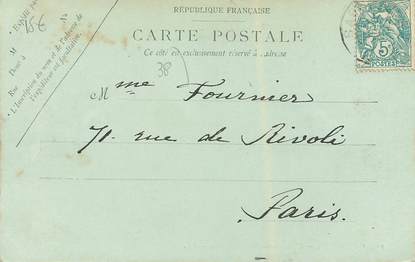 RÉPUBLIQUE FRANÇAISE
CARTE POSTALE
Ce côté est exclusivement réservé à l'adresse
38
15€
M
Rue
L'inscription du nom et de l'adresse de
l'expéditeur est facultative.
POSTES
5
Mme Fournier
71. rue de Rivoli
Paris.